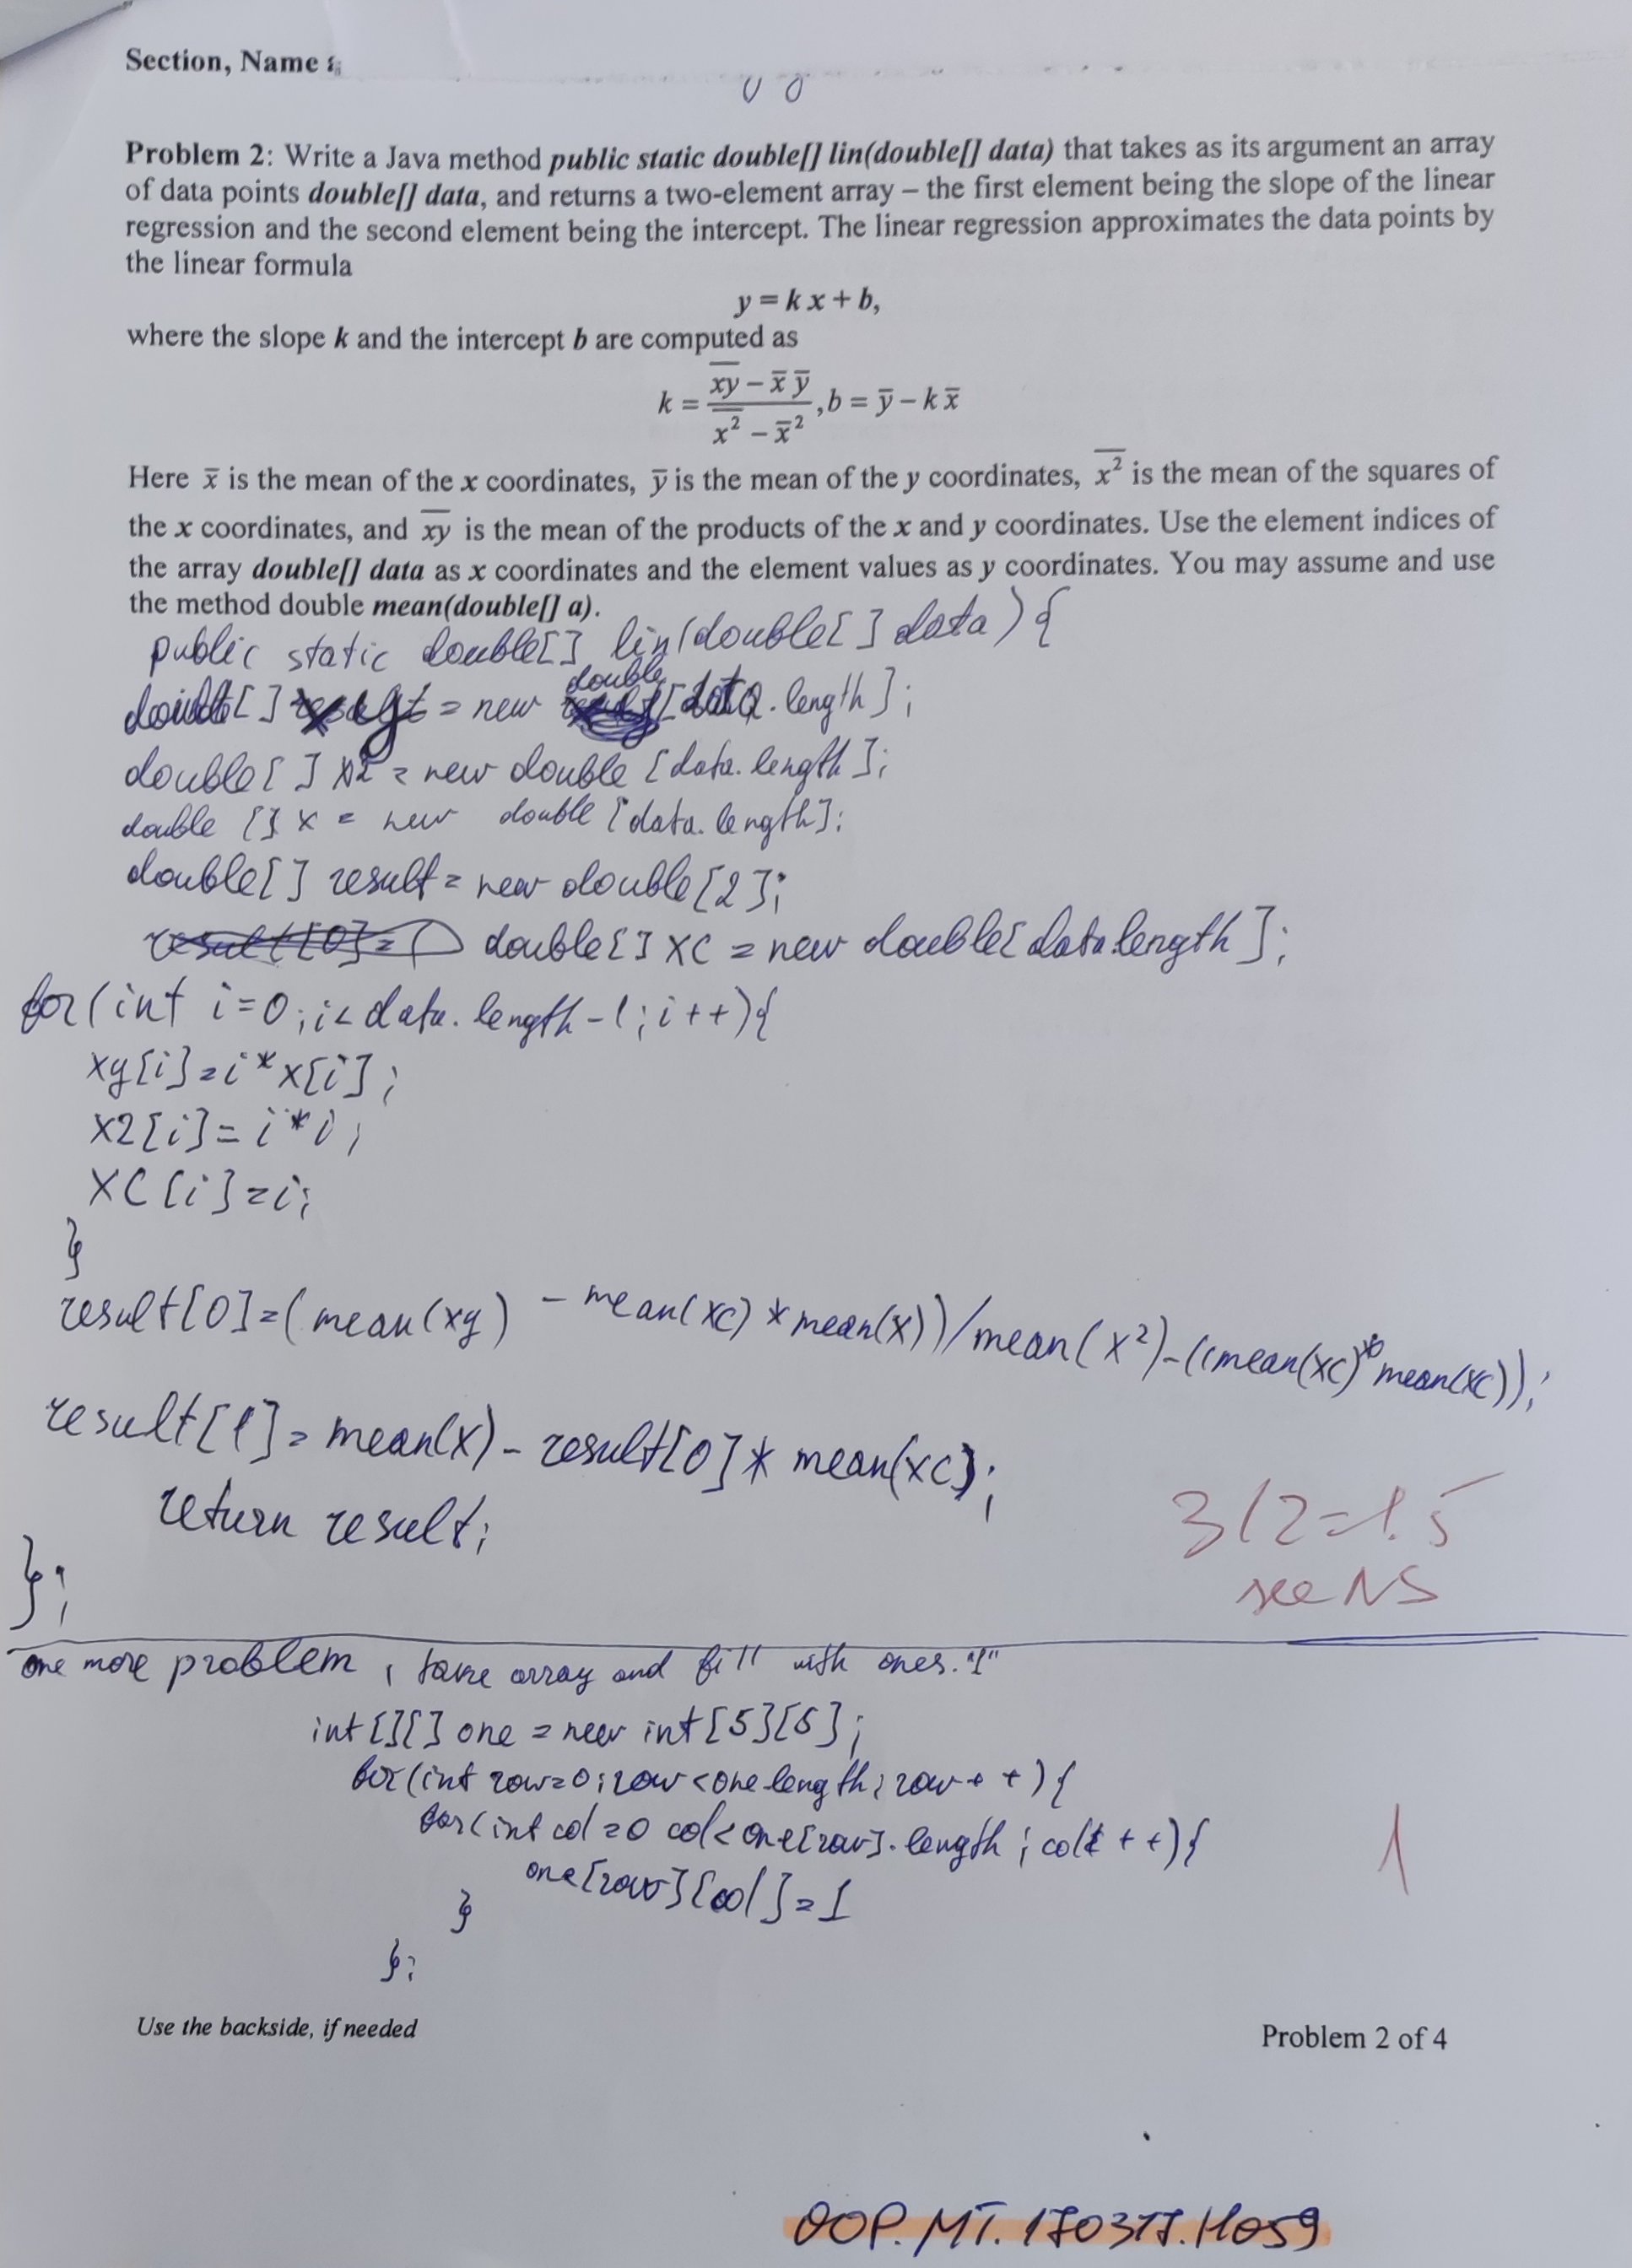 Section, Name
Problem 2: Write a Java method public static double[] lin(double[] data) that takes as its argument an array
of data points double[] data, and returns a two-element array – the first element being the slope of the linear
regression and the second element being the intercept. The linear regression approximates the data points by
the linear formula
y = k x + b,
where the slope k and the intercept b are computed as
k = (x̅y̅ − x̅ y̅) / (x̅²̅ − x̅²), b = y̅ − k x̅
Here x̅ is the mean of the x coordinates, y̅ is the mean of the y coordinates, x̅²̅ is the mean of the squares of
the x coordinates, and x̅y̅ is the mean of the products of the x and y coordinates. Use the element indices of
the array double[] data as x coordinates and the element values as y coordinates. You may assume and use
the method double mean(double[] a).
public static double[] lin(double[] data){
double[] xy = new double [data.length];
double[] x2 = new double [data.length];
double [] x = new double [data.length];
double[] result = new double [2];
double[] xc = new double[data.length];
for(int i=0; i< data.length-1; i++){
xy[i]=i*x[i];
x2[i]=i*i;
xc[i]=i;
}
result[0]=(mean(xy) - mean(xc)*mean(x))/mean(x2)-((mean(xc)*mean(xc));
result[1]=mean(x)-result[0]*mean(xc);
return result;
};
3/2=1.5
see NS
one more problem, take array and fill with ones. "1"
int[][] one = new int[5][5];
for(int row=0; row<one.length; row++){
for(int col=0 col<one[row].length; col++){
one[row][col]=1
}
};
1
Use the backside, if needed
Problem 2 of 4
OOP.MT.170317.H059